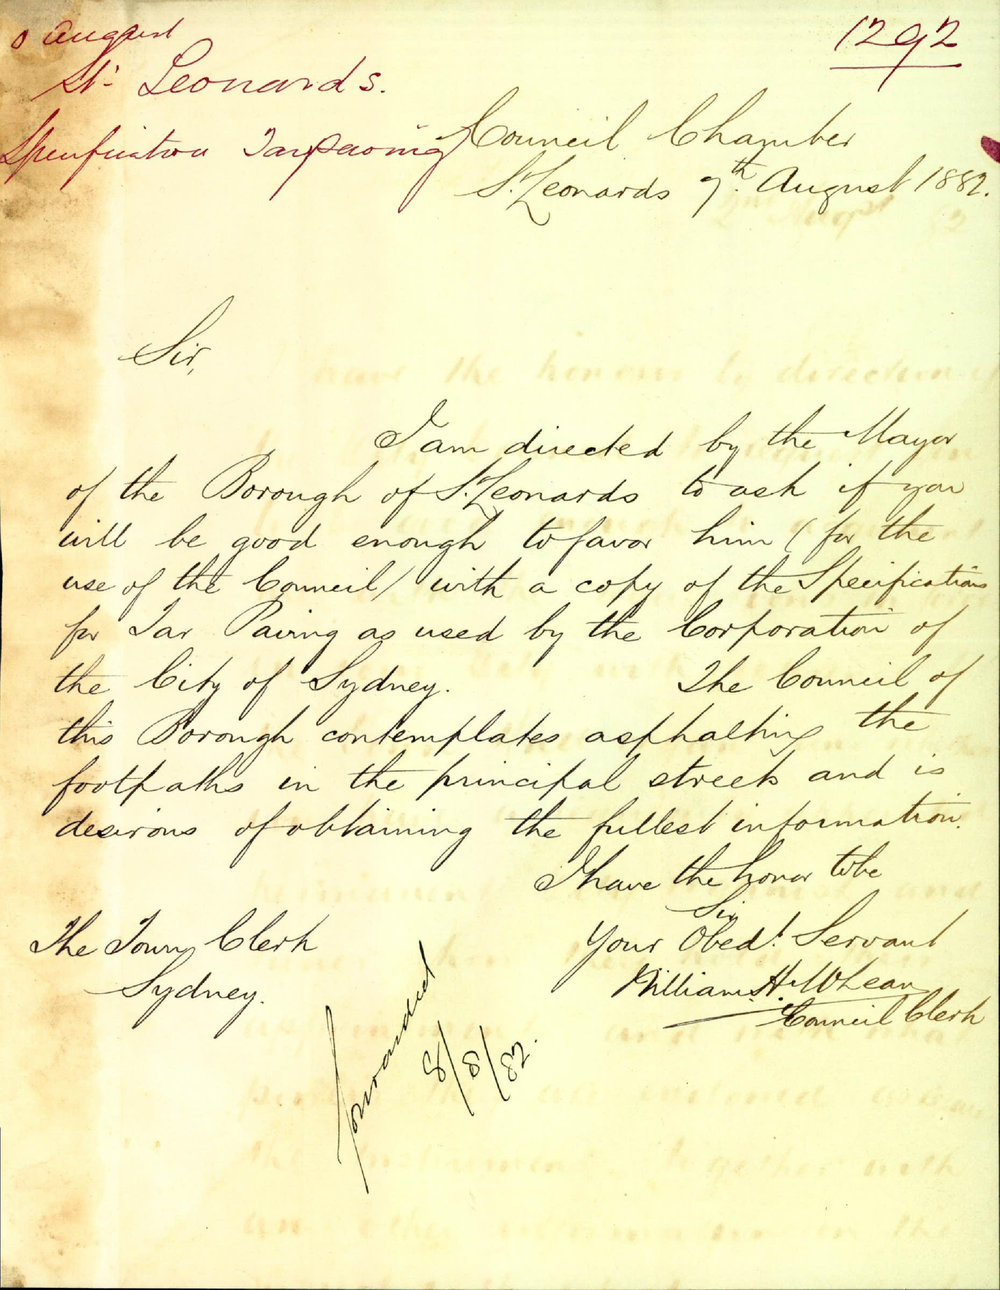 August
1292
St. Leonards.
Specification Tarpaving
Council Chamber
St. Leonards 7th. August 1882.
Sir,
I am directed by the Mayor
of the Borough of St. Leonards to ask if you
will be good enough to favor him (for the
use of the Council) with a copy of the Specifications
for Tar Paving as used by the Corporation of
the City of Sydney. The Council of
this Borough contemplates asphalting the
footpaths in the principal streets and is
desirous of obtaining the fullest information.
I have the honor to be
Sir
Your Obedt. Servant
William H. McLean
Council Clerk
The Town Clerk
Sydney.
forwarded
8/8/82.